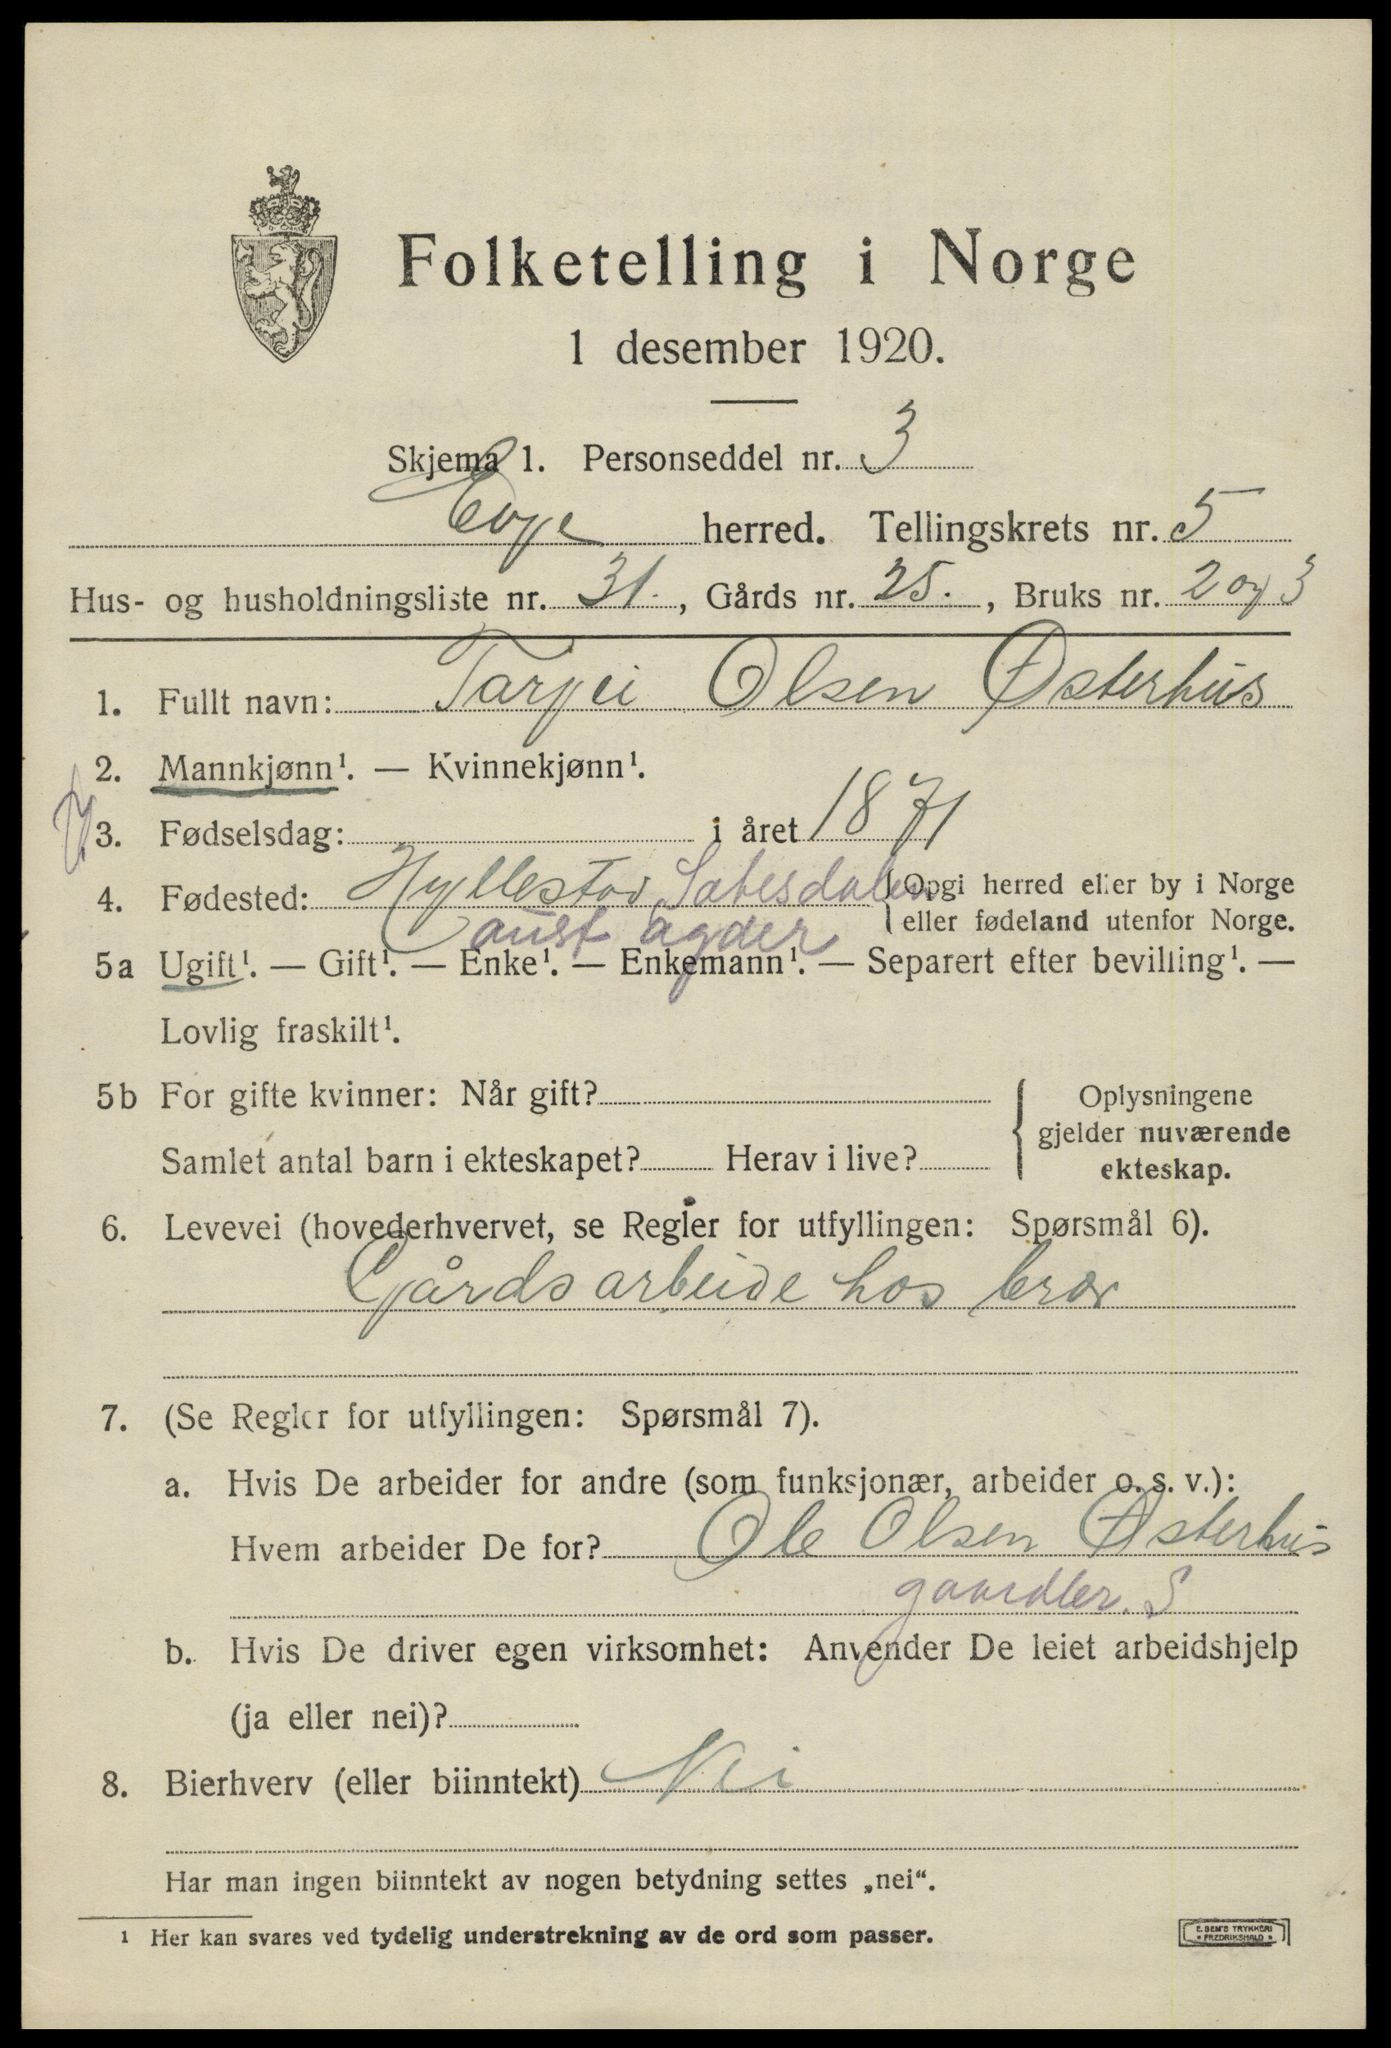 Folketelling i Norge
1 desember 1920.
Skjema 1. Personseddel nr. 3
Evje herred. Tellingskrets nr. 5
Hus- og husholdningsliste nr. 31., Gårds nr. 25., Bruks nr. 2 og 3
1. Fullt navn: Tarjei Olsen Østerhus
2. Mannkjønn¹. — Kvinnekjønn¹.
3. Fødselsdag: i året 1871
4. Fødested: Hyllestad Sætesdalen { Opgi herred eller by i Norge
aust agder eller fødeland utenfor Norge.
5a Ugift¹. — Gift¹. — Enke¹. — Enkemann¹. — Separert efter bevilling¹. —
Lovlig fraskilt¹.
5b For gifte kvinner: Når gift? { Oplysningene
gjelder nuværende
Samlet antal barn i ekteskapet? Herav i live? ekteskap.
6. Levevei (hovederhvervet, se Regler for utfyllingen: Spørsmål 6).
Gårdsarbeide hos bror
7. (Se Regler for utfyllingen: Spørsmål 7).
a. Hvis De arbeider for andre (som funksjonær, arbeider o. s. v.):
Hvem arbeider De for? Ole Olsen Østerhus
S
b. Hvis De driver egen virksomhet: Anvender De leiet arbeidshjelp
(ja eller nei)?
8. Bierhverv (eller biinntekt) Nei
Har man ingen biinntekt av nogen betydning settes „nei“.
¹ Her kan svares ved tydelig understrekning av de ord som passer.
E. SEM'S TRYKKERI
* FREDRIKSHALD *